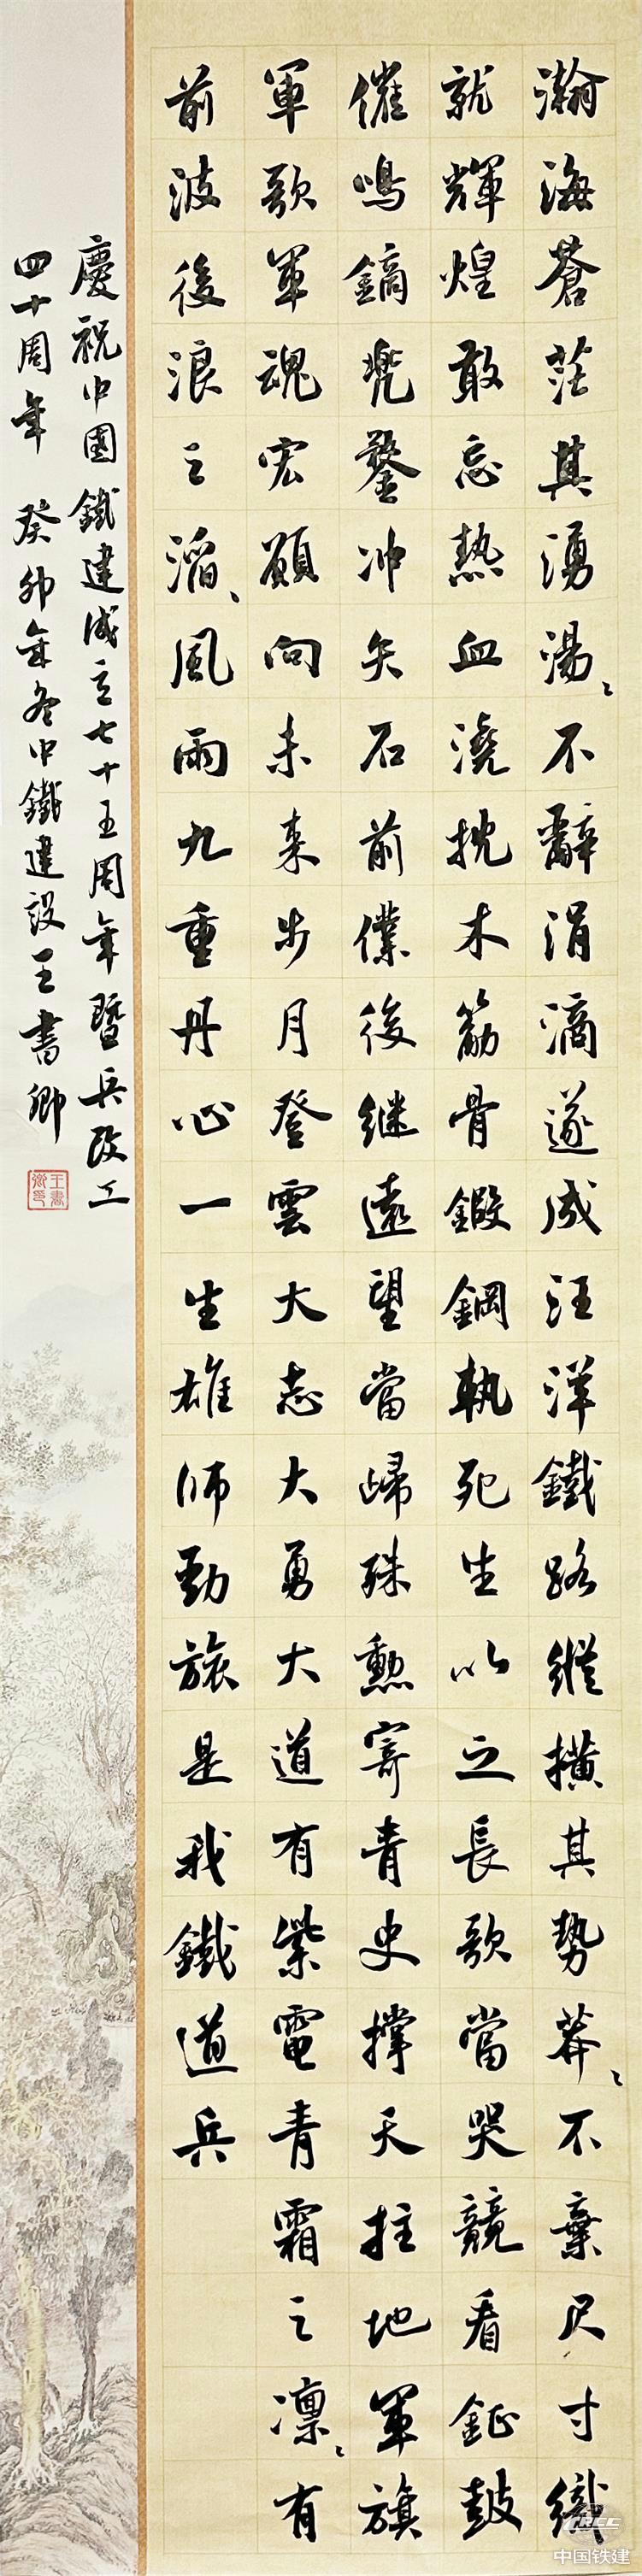 瀚海蒼茫其湧湯〻不辭涓滴遂成汪洋鐵路縱横其势莽〻不棄尺寸織
就輝煌敢忘熱血澆抌木筋骨鍛鋼執死生以之長歌當哭競看鉦鼓
催鳴鏑兜鍪冲矢石前僕後继遠望當歸殊勳寄青史撑天拄地軍旗
軍歌軍魂宏願向未来步月登雲大志大勇大道有紫電青霜之凛〻有
前波後浪之滔〻風雨九重丹心一生雄師勁旅是我鐵道兵
慶祝中國鐵建成立七十五周年暨兵改工
四十周年 癸卯年冬中鐵建設王書卿
王書卿印
CRCC
中国铁建